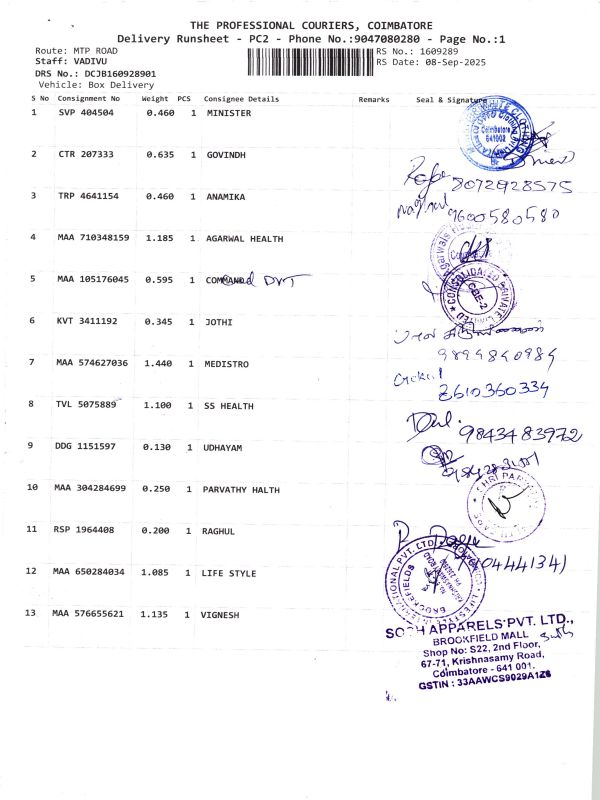 THE PROFESSIONAL COURIERS, COIMBATORE
Delivery Runsheet - PC2 - Phone No.:9047080280 - Page No.:1
Route: MTP ROAD RS No.: 1609289
Staff: VADIVU RS Date: 08-Sep-2025
DRS No.: DCJB160928901
Vehicle: Box Delivery
S No Consignment No Weight PCS Consignee Details Remarks Seal & Signature
1 SVP 404504 0.460 1 MINISTER
Coimbatore
641002
2 CTR 207333 0.635 1 GOVINDH
8072928575
3 TRP 4641154 0.460 1 ANAMIKA
9600580580
4 MAA 710348159 1.185 1 AGARWAL HEALTH
5 MAA 105176045 0.595 1 COMMAND DVT
CONSOLIDATED PRIVATE LIMITED
CBE-2
6 KVT 3411192 0.345 1 JOTHI
7 MAA 574627036 1.440 1 MEDISTRO
8610360334
8 TVL 5075889 1.100 1 SS HEALTH
9843483972
9 DDG 1151597 0.130 1 UDHAYAM
10 MAA 304284699 0.250 1 PARVATHY HALTH
11 RSP 1964408 0.200 1 RAGHUL
12 MAA 650284034 1.085 1 LIFE STYLE
BROOKEFIELDS
13 MAA 576655621 1.135 1 VIGNESH
APPARELS PVT. LTD.,
BROOKFIELD MALL
Shop No: S22, 2nd Floor,
67-71, Krishnasamy Road,
Coimbatore - 641 001.
GSTIN : 33AAWCS9029A1Z8